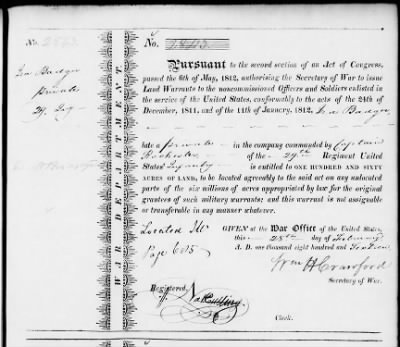 No. 2843
Ira Badger
private
29. Inf
No. 2843
WAR DEPARTMENT
Pursuant to the second section of an Act of Congress,
passed the 6th of May, 1812, authorising the Secretary of War to issue
Land Warrants to the noncommissioned Officers and Soldiers enlisted in
the service of the United States, conformably to the acts of the 24th of
December, 1811, and of the 11th of January, 1812. Ira Badger
late a private in the company commanded by Captain
of the 29th Regiment United
States' Infantry is entitled to ONE HUNDRED AND SIXTY
ACRES OF LAND, to be located agreeably to the said act on any unlocated
parts of the six millions of acres appropriated by law for the original
grantees of such military warrants; and this warrant is not assignable
or transferable in any manner whatever.
Located Ills
GIVEN at the War Office of the United States,
this 28th day of February
Page 605
A. D. one thousand eight hundred and Sixteen
Wm H Crawford
Secretary of War.
Registered,
Clerk.